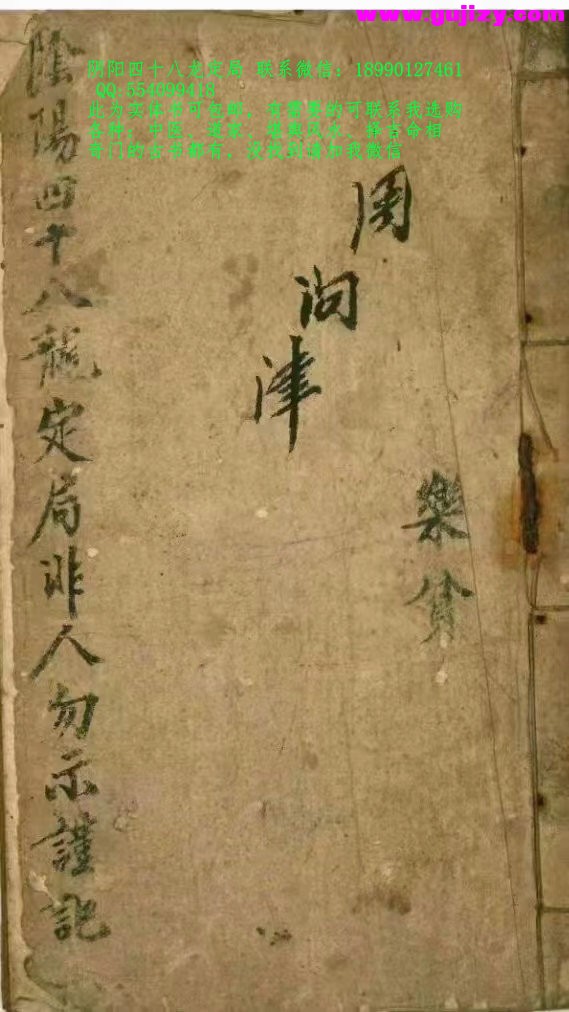 www.gujizy.com
阴阳四十八龙定局 联系微信：18990127461
QQ:554099418
此为实体书可包邮，有需要的可联系我选购
各种：中医、道家、堪舆风水、择吉命相
奇门的古书都有，没找到请加我微信
陰陽四十八龍定局非人勿示謹記
周問津
樂貧